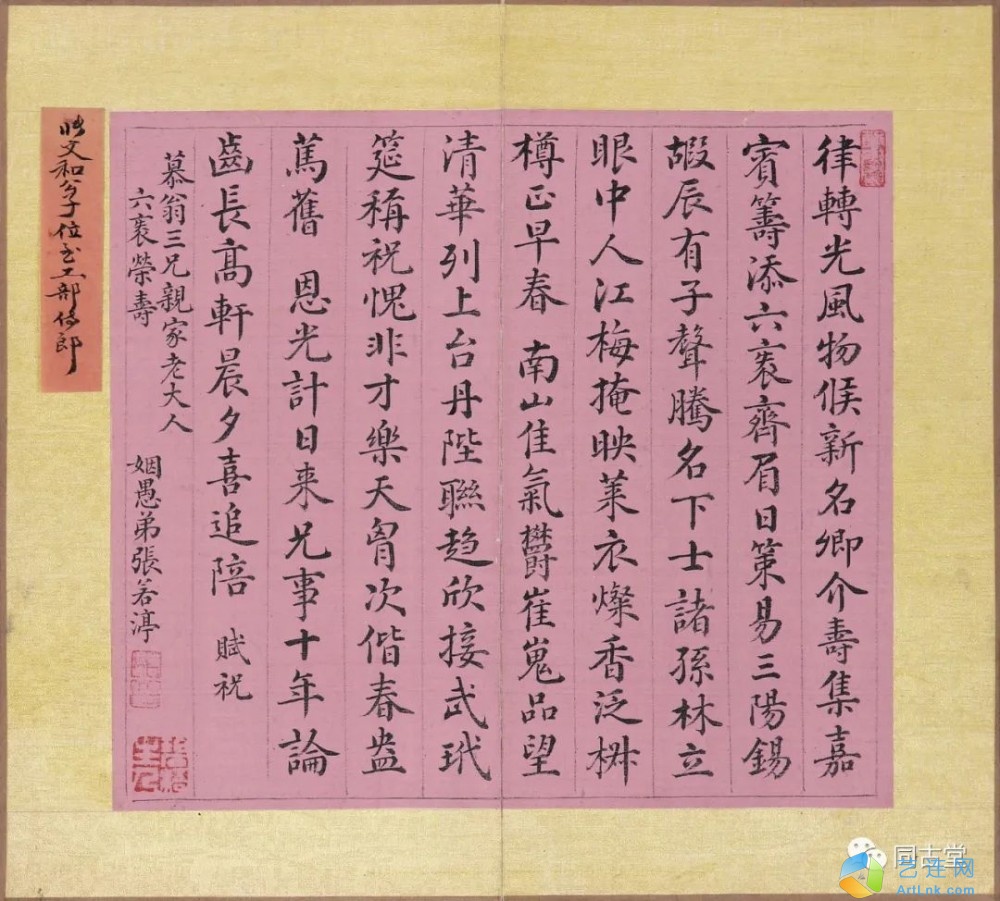 律轉光風物候新名卿介壽集嘉
賓籌添六袠齊眉日策易三陽錫
嘏辰有子聲騰名下士諸孫林立
眼中人江梅掩映萊衣燦香泛椒
樽正早春 南山佳氣欝崔嵬品望
清華列上台丹陛聯趋欣接武玳
筵稱祝愧非才樂天胷次偕春盎
篤舊 恩光計日来兄事十年論
齒長高軒晨夕喜追陪 賦祝
慕翁三兄親家老大人
六袠榮壽
姻愚弟張若渟
文和公子位至工部侍郎
同古堂
艺连网
ArtLnk.com